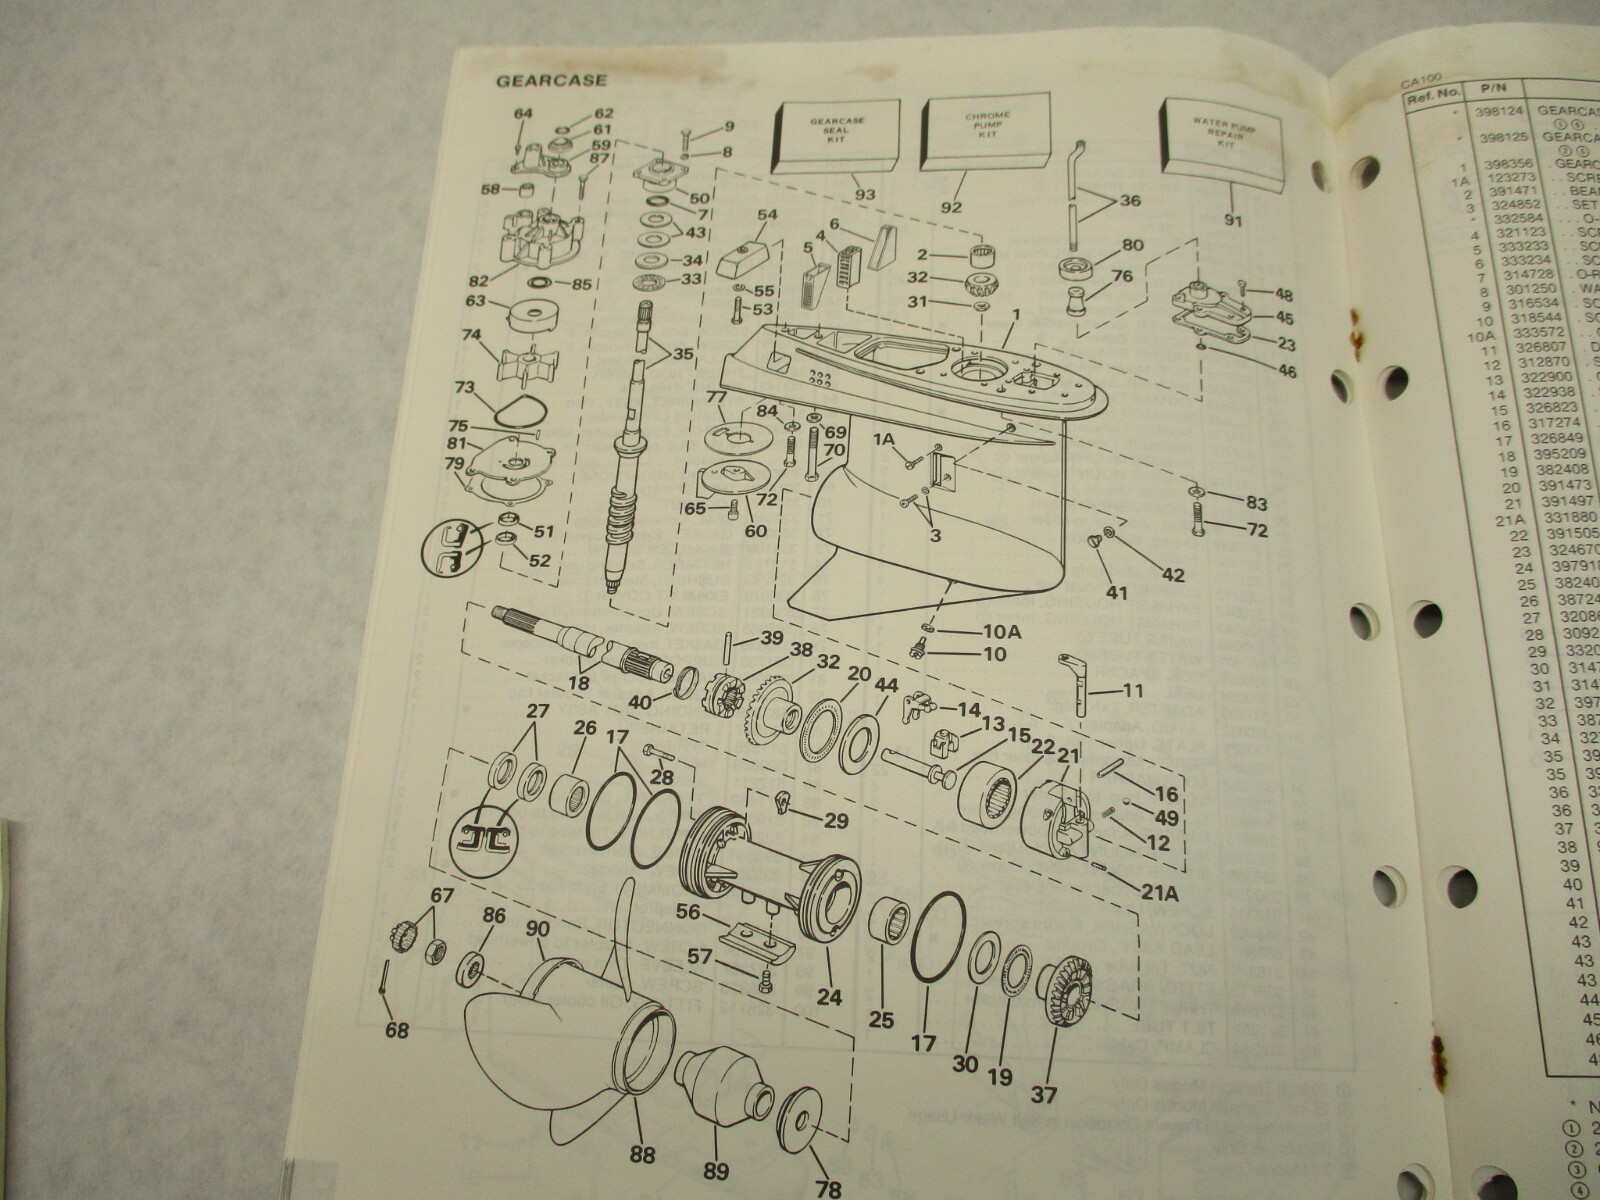 GEARCASE
64
62
61
59
87
58
9
8
50
7
43
34
33
82
85
63
74
73
75
81
79
51
52
35
54
55
53
GEARCASE
SEAL
KIT
93
CHROME
PUMP
KIT
92
WATER PUMP
REPAIR
KIT
91
6
4
5
2
32
31
1
36
80
76
48
45
23
46
77
84
69
70
72
65
60
1A
3
83
72
41
42
10A
10
18
40
39
38
32
20
44
14
13
15
22
21
11
16
49
12
21A
27
26
17
28
29
67
86
90
68
56
57
24
25
17
30
19
37
88
89
78
CA100
Ref. No. P/N
* 398124 GEARCAS
① ④
* 398125 GEARCA
② ⑤
1 398356 . GEARC
1A 123273 . . SCRE
2 391471 . . BEA
3 324852 . . SET
* 332584 . . . O-
4 321123 . . SCR
5 333233 . . SC
6 333234 . . SC
7 314728 . O-R
8 301250 . WA
9 316534 . SC
10 318544 . SC
10A 333572 . .
11 326807 . D
12 312870 . S
13 322900
14 322938
15 326823 .
16 317274
17 326849
18 395209
19 382408
20 391473
21 391497
21A 331880
22 391505
23 324670
24 397918
25 38240
26 38724
27 32086
28 3092
29 3320
30 314
31 314
32 397
33 387
34 32
35 39
35 39
36 3
36 3
37 3
38
39
40
41
42
43
43
43
44
45
46
* N
① 2
② 2
③
④